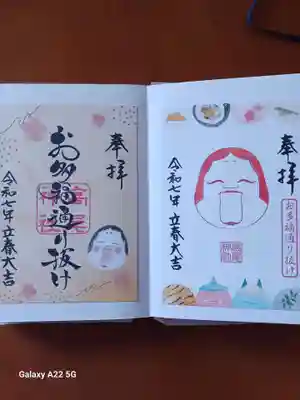 奉拝
お多福通り抜け
令和七年 立春大吉
奉拝
お多福通り抜け
令和七年 立春大吉
Galaxy A22 5G